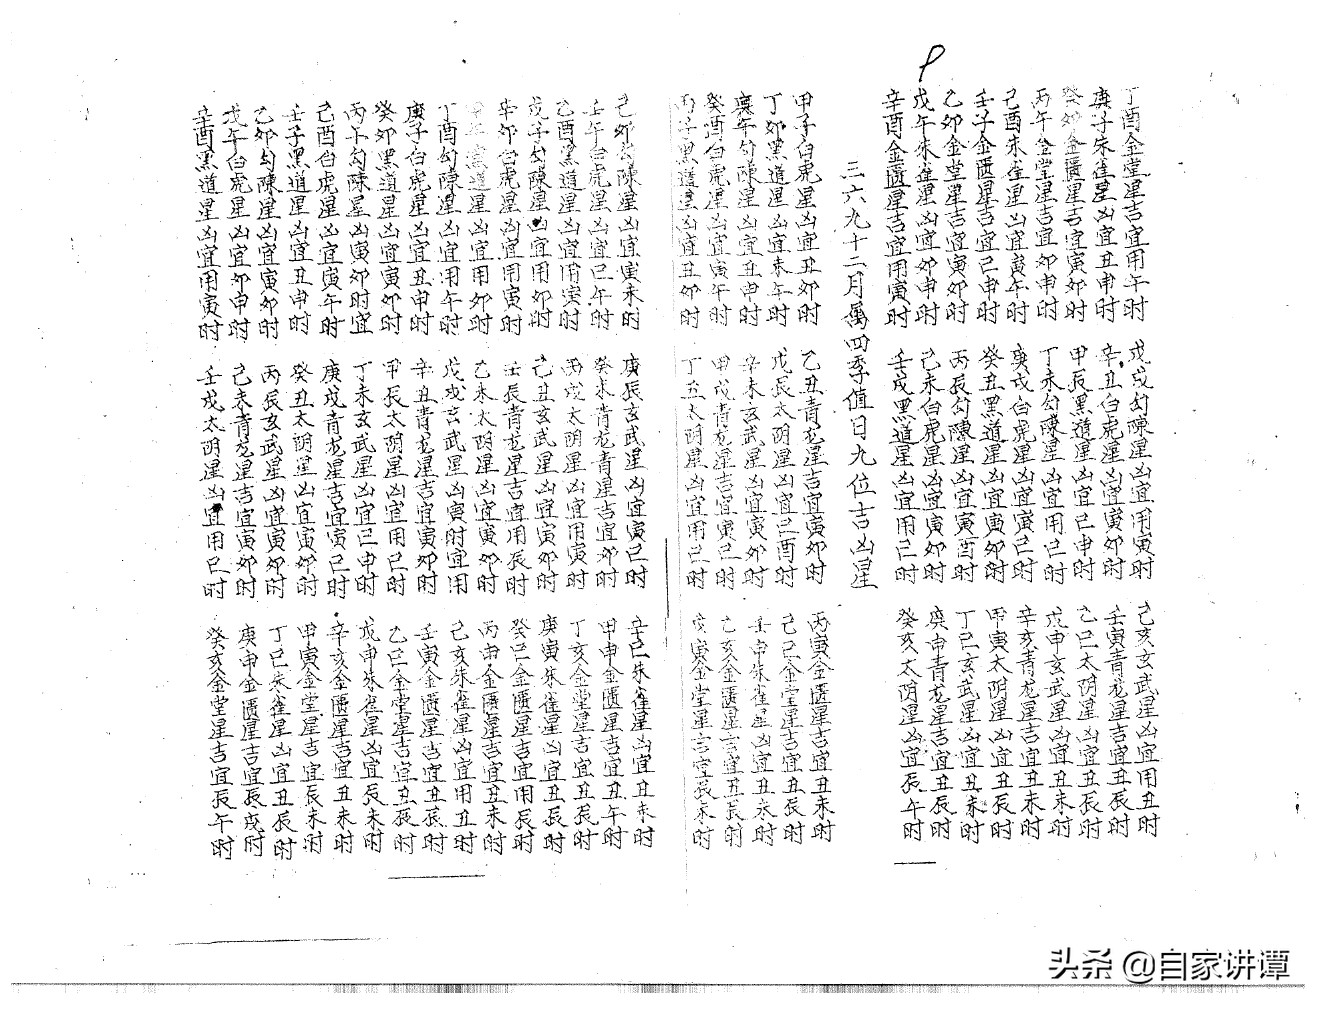 丁酉金堂星吉宜用午时 戊戌勾陳星凶宜用寅时 己亥玄武星凶宜用丑时
庚子朱雀星凶宜丑申时 辛丑白虎星凶宜寅卯时 壬寅青龙星吉宜丑辰时
癸卯金匮星吉宜寅卯时 甲辰黑道星凶宜巳申时 乙巳太阴星凶宜丑辰时
丙午金堂星吉宜卯申时 丁未勾陳星凶宜用巳时 戊申玄武星凶宜丑未时
己酉朱雀星凶宜寅午时 庚戌白虎星凶宜寅巳时 辛亥青龙星吉宜丑未时
壬子金匮星吉宜巳申时 癸丑黑道星凶宜寅卯时 甲寅太阴星凶宜丑辰时
乙卯金堂星吉宜寅卯时 丙辰勾陳星凶宜寅酉时 丁巳玄武星凶宜丑未时
戊午朱雀星凶宜卯申时 己未白虎星凶宜寅卯时 庚申青龙星吉宜丑辰时
辛酉金匮星吉宜用寅时 壬戌黑道星凶宜用巳时 癸亥太阴星凶宜辰午时
三六九十二月属四季值日九位吉凶星
甲子白虎星凶宜丑卯时 乙丑青龙星吉宜寅卯时 丙寅金匮星吉宜丑未时
丁卯黑道星凶宜未午时 戊辰太阴星凶宜巳酉时 己巳金堂星吉宜丑辰时
庚午勾陳星凶宜丑申时 辛未玄武星凶宜寅卯时 壬申朱雀星凶宜丑未时
癸酉白虎星凶宜寅午时 甲戌青龙星吉宜寅巳时 乙亥金匮星吉宜丑辰时
丙子黑道星凶宜丑卯时 丁丑太阴星凶宜用巳时 戊寅金堂星吉宜辰未时
己卯勾陳星凶宜寅未时 庚辰玄武星凶宜寅巳时 辛巳朱雀星凶宜丑未时
壬午白虎星凶宜巳午时 癸未青龙青星吉宜卯时 甲申金匮星吉宜丑午时
乙酉黑道星凶宜用寅时 丙戌太阴星凶宜用寅时 丁亥金堂星吉宜丑辰时
戊子勾陳星凶宜用卯时 己丑玄武星凶宜寅卯时 庚寅朱雀星凶宜丑辰时
辛卯白虎星凶宜用寅时 壬辰青龙星吉宜用辰时 癸巳金匮星吉宜用辰时
黑道星凶宜用卯时 乙未太阴星凶宜寅卯时 丙申金匮星吉宜丑未时
丁酉勾陳星凶宜用午时 戊戌玄武星凶寅时宜用 己亥朱雀星凶宜用丑时
庚子白虎星凶宜丑申时 辛丑青龙星吉宜寅卯时 壬寅金匮星吉宜丑辰时
癸卯黑道星凶宜寅卯时 甲辰太阴星凶宜用巳时 乙巳金堂星吉宜丑辰时
丙午勾陳星凶寅卯时宜 丁未玄武星凶宜巳申时 戊申朱雀星凶宜辰未时
己酉白虎星凶宜寅午时 庚戌青龙星吉宜寅巳时 辛亥金匮星吉宜丑未时
壬子黑道星凶宜丑申时 癸丑太阴星凶宜寅卯时 甲寅金堂星吉宜辰未时
乙卯勾陳星凶宜寅卯时 丙辰玄武星凶宜寅卯时 丁巳朱雀星凶宜丑辰时
戊午白虎星凶宜卯申时 己未青龙星吉宜寅卯时 庚申金匮星吉宜辰戌时
辛酉黑道星凶宜用寅时 壬戌太阴星凶宜用巳时 癸亥金堂星吉宜辰午时
头条 @自家讲谭